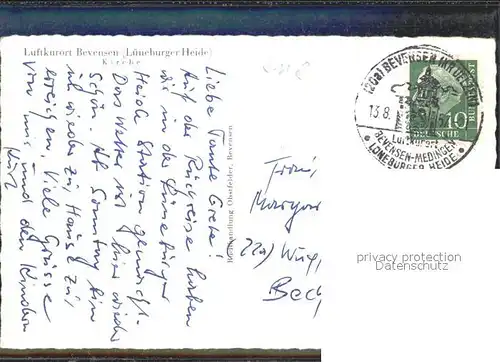 Luftkurort Bevensen (Lüneburger Heide)
Kirche
Liebe Tante Grete!
Auf der Rückreise haben
wir in der Lüneburger
Heide Station gemacht.
Das Wetter ist hier wieder
schön. Ab Sonntag bin
ich wieder zu Hause zu
erreichen. Viele Grüsse
von mir und den Kindern
Buchhandlung Obstfelder, Bevensen
Frau
Margar
22a) Wupp
Bec
(20a) BEVENSEN (KR. UELZEN)
13.8.
Luftkurort
BEVENSEN-MEDINGEN
LÜNEBURGER HEIDE
10
DEUTSCHE
BU
privacy protection
Datenschutz